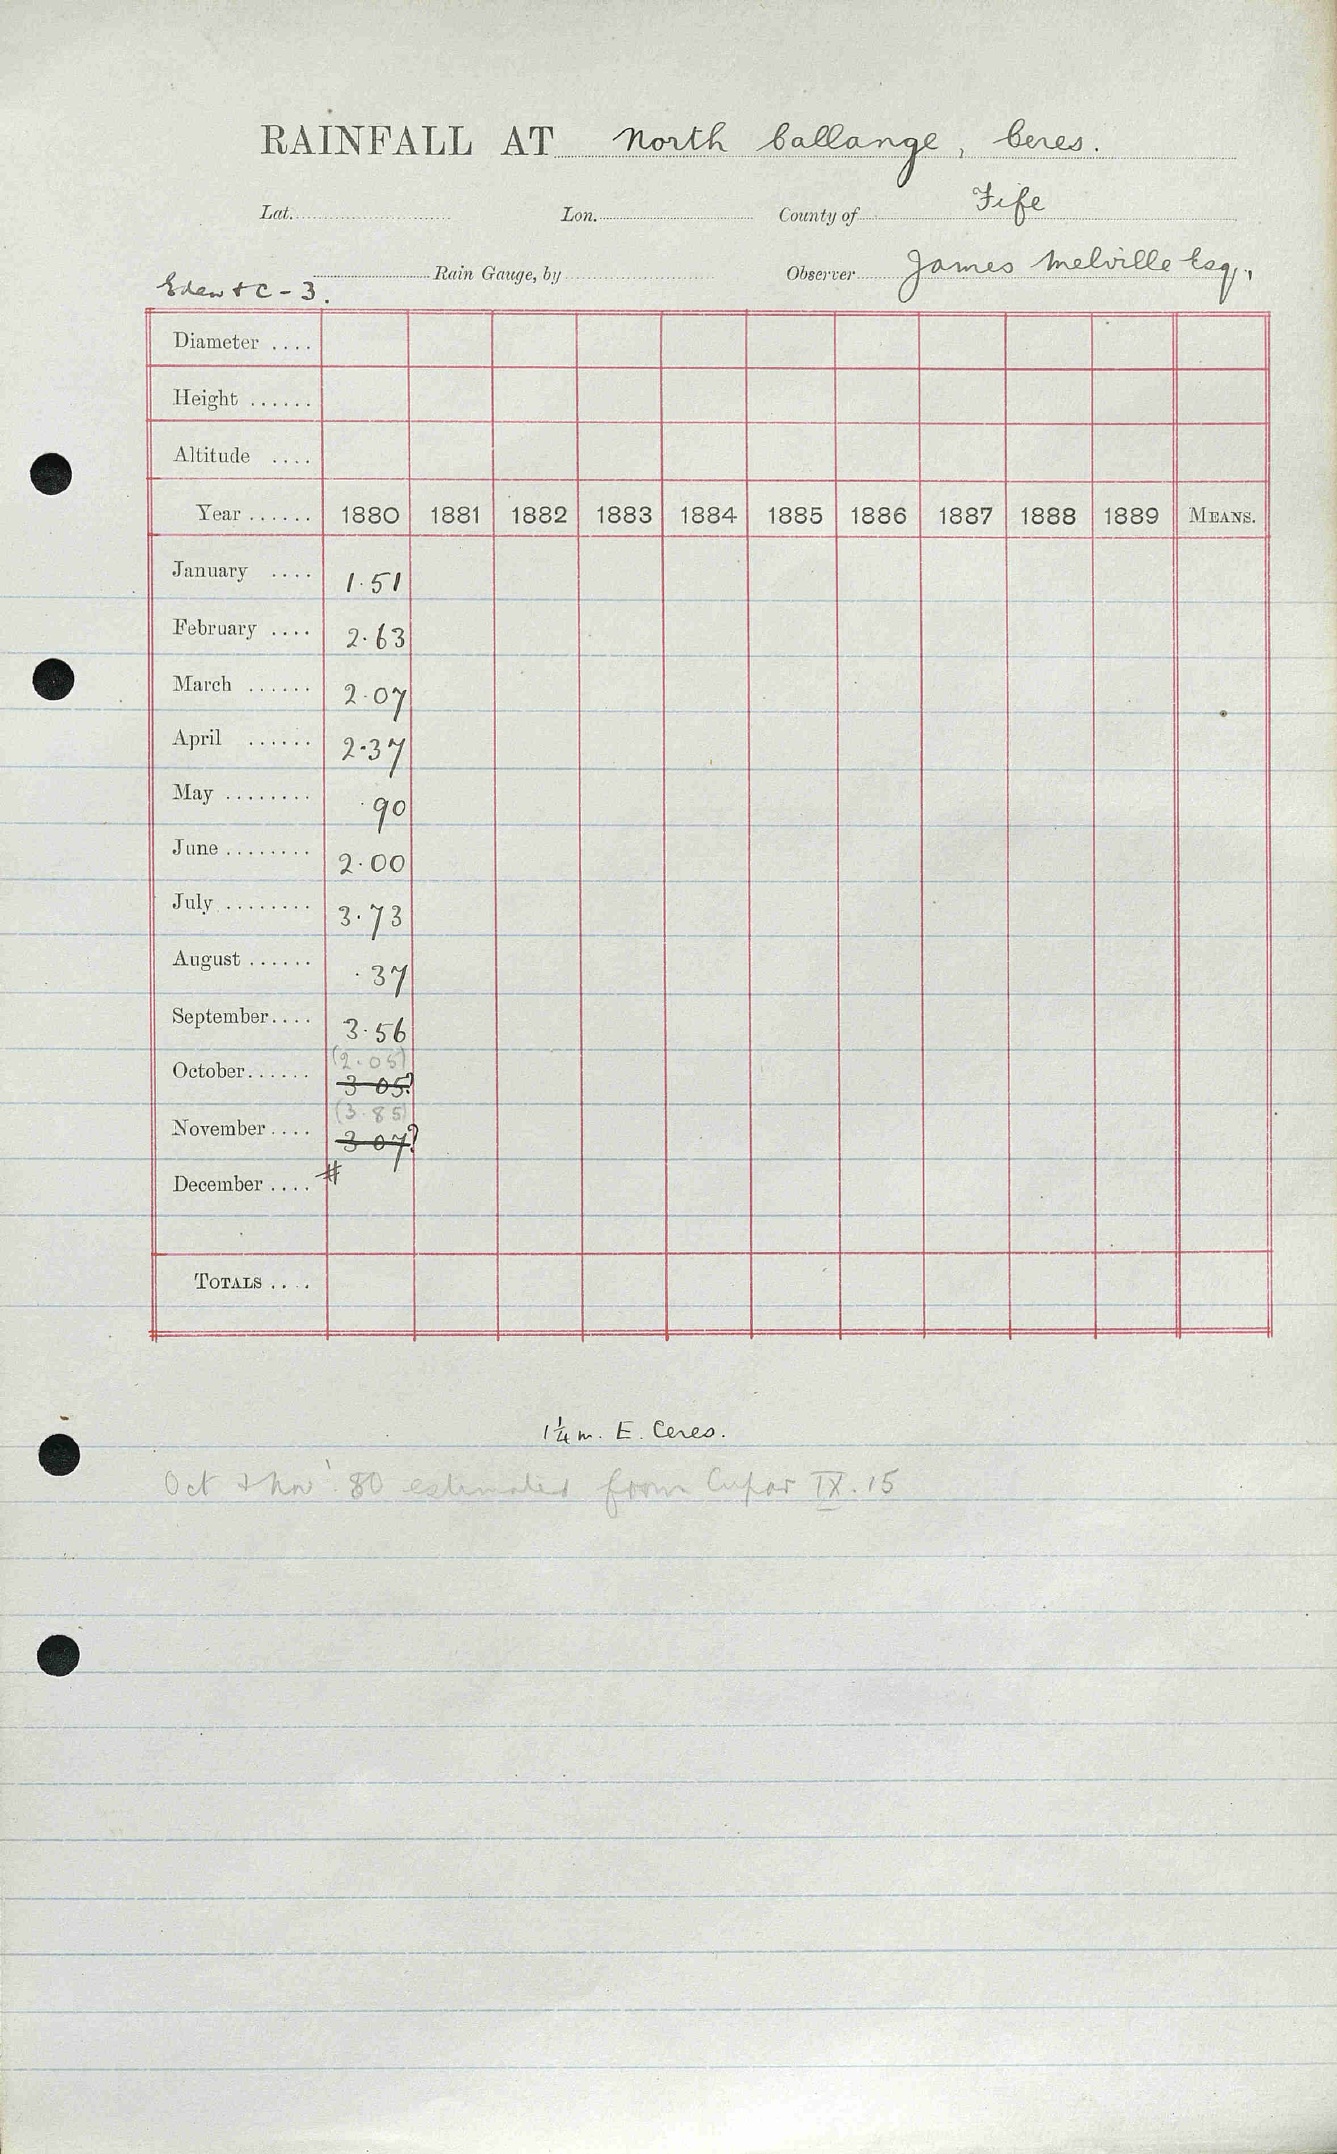 RAINFALL AT North Callange, Ceres.
Lat. Lon. County of Fife
Rain Gauge, by Observer James Melville Esq.,
Eden & C - 3.
Diameter ....
Height ......
Altitude ....
Year ...... 1880 1881 1882 1883 1884 1885 1886 1887 1888 1889 MEANS.
January .... 1.51
February .... 2.63
March ...... 2.07
April ...... 2.37
May ........ .90
June ........ 2.00
July ........ 3.73
August ...... .37
September.... 3.56
(2.05)
October...... 3 05?
(3.85)
November.... 3 07?
December .... #
TOTALS ....
1¼ m. E. Ceres.
Oct & Nov '80 estimated from Cupar IX.15